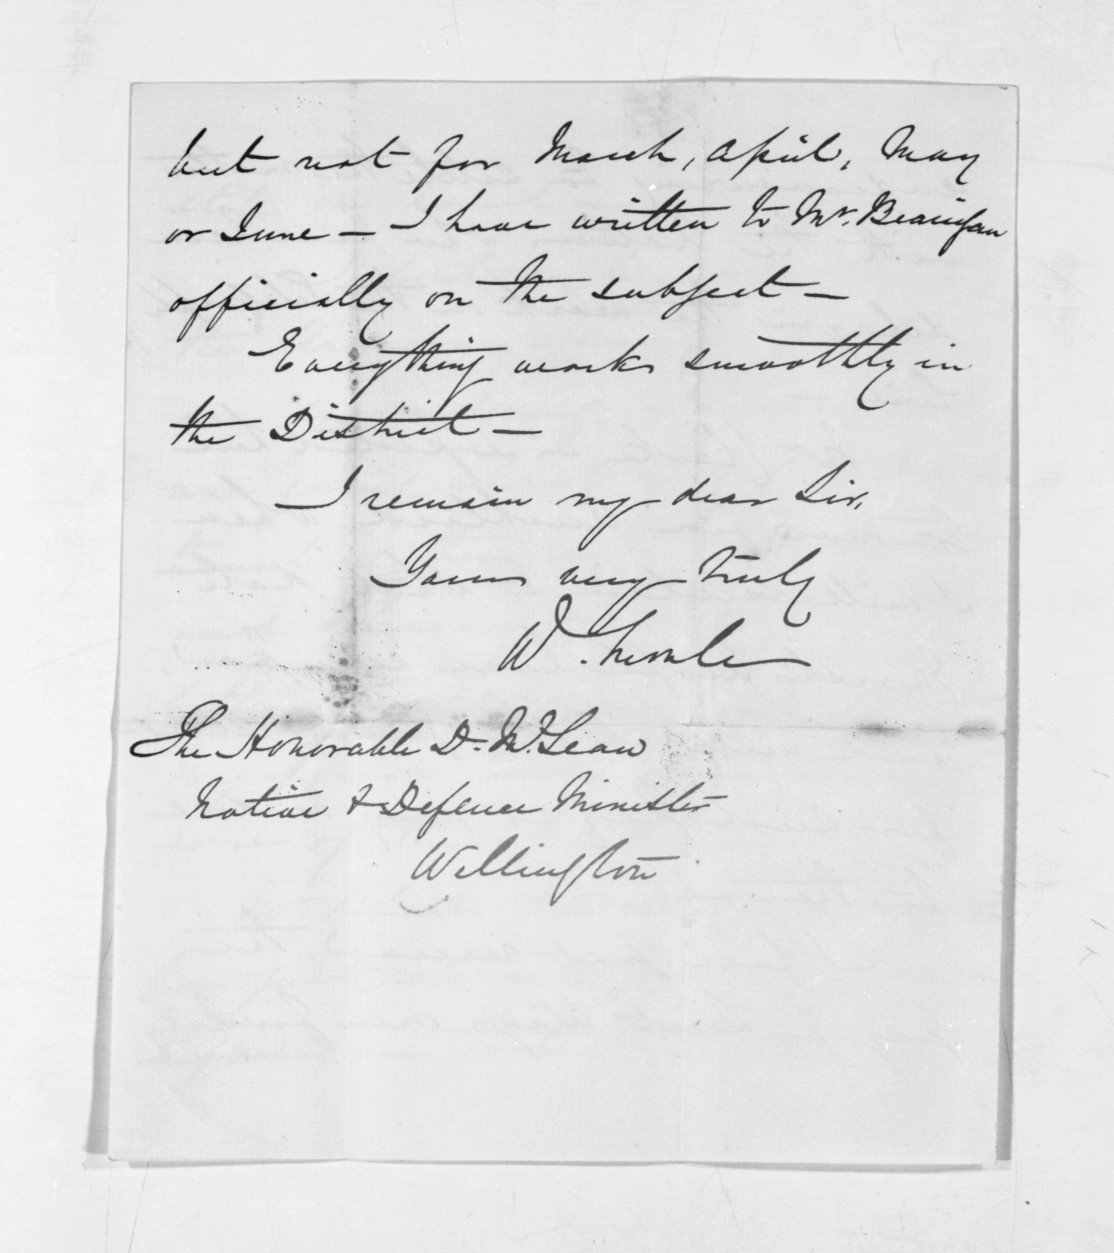 but not for March, April, May
or June – I have written to Mr. Beaufau
officially on the subject –
Everything works smoothly in
the District –
I remain my dear Sir,
Yours very truly
W.
The Honorable D. McLean
Native & Defence Minister
Wellington